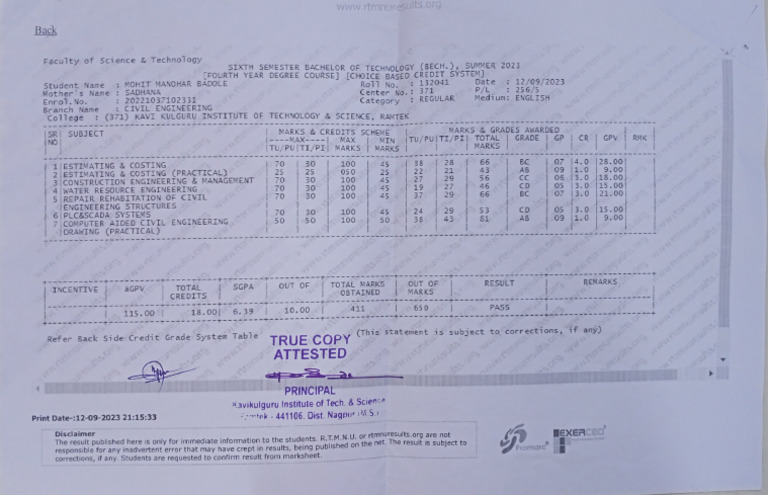 www.rtmnuresults.org
Back
Faculty of Science & Technology
SIXTH SEMESTER BACHELOR OF TECHNOLOGY (BECH.), SUMMER 2023
[FOURTH YEAR DEGREE COURSE] [CHOICE BASED CREDIT SYSTEM]
Student Name : MOHIT MANOHAR BADOLE Roll No. : 132041 Date : 12/09/2023
Mother's Name : SADHANA Center No.: 371 P/L : 256/5
Enrol.No. : 20221037102331 Category : REGULAR Medium: ENGLISH
Branch Name : CIVIL ENGINEERING
College : (371) KAVI KULGURU INSTITUTE OF TECHNOLOGY & SCIENCE, RAMTEK
SR SUBJECT MARKS & CREDITS SCHEME MARKS & GRADES AWARDED
NO ----MAX---- MAX MIN TU/PU TI/PI TOTAL GRADE GP CR GPV RMK
TU/PU TI/PI MARKS MARKS MARKS
1 ESTIMATING & COSTING 70 30 100 45 38 28 66 BC 07 4.0 28.00
2 ESTIMATING & COSTING (PRACTICAL) 25 25 050 25 22 21 43 AB 09 1.0 9.00
3 CONSTRUCTION ENGINEERING & MANAGEMENT 70 30 100 45 27 29 56 CC 06 3.0 18.00
4 WATER RESOURCE ENGINEERING 70 30 100 45 19 27 46 CD 05 3.0 15.00
5 REPAIR REHABITATION OF CIVIL 70 30 100 45 37 29 66 BC 07 3.0 21.00
ENGINEERING STRUCTURES
6 PLC&SCADA SYSTEMS 70 30 100 45 24 29 53 CD 05 3.0 15.00
7 COMPUTER AIDED CIVIL ENGINEERING 50 50 100 50 38 43 81 AB 09 1.0 9.00
DRAWING (PRACTICAL)
INCENTIVE &GPV TOTAL SGPA OUT OF TOTAL MARKS OUT OF RESULT REMARKS
CREDITS OBTAINED MARKS
115.00 18.00 6.39 10.00 411 650 PASS
Refer Back Side Credit Grade System Table (This statement is subject to corrections, if any)
TRUE COPY
ATTESTED
PRINCIPAL
Kavikulguru Institute of Tech. & Science
Ramtek - 441106. Dist. Nagpur (M.S.)
Print Date-:12-09-2023 21:15:33
Disclaimer
The result published here is only for immediate information to the students. R.T.M.N.U. or rtmnuresults.org are not
responsible for any inadvertent error that may have crept in results, being published on the net. The result is subject to
corrections, if any. Students are requested to confirm result from marksheet.
Promarc